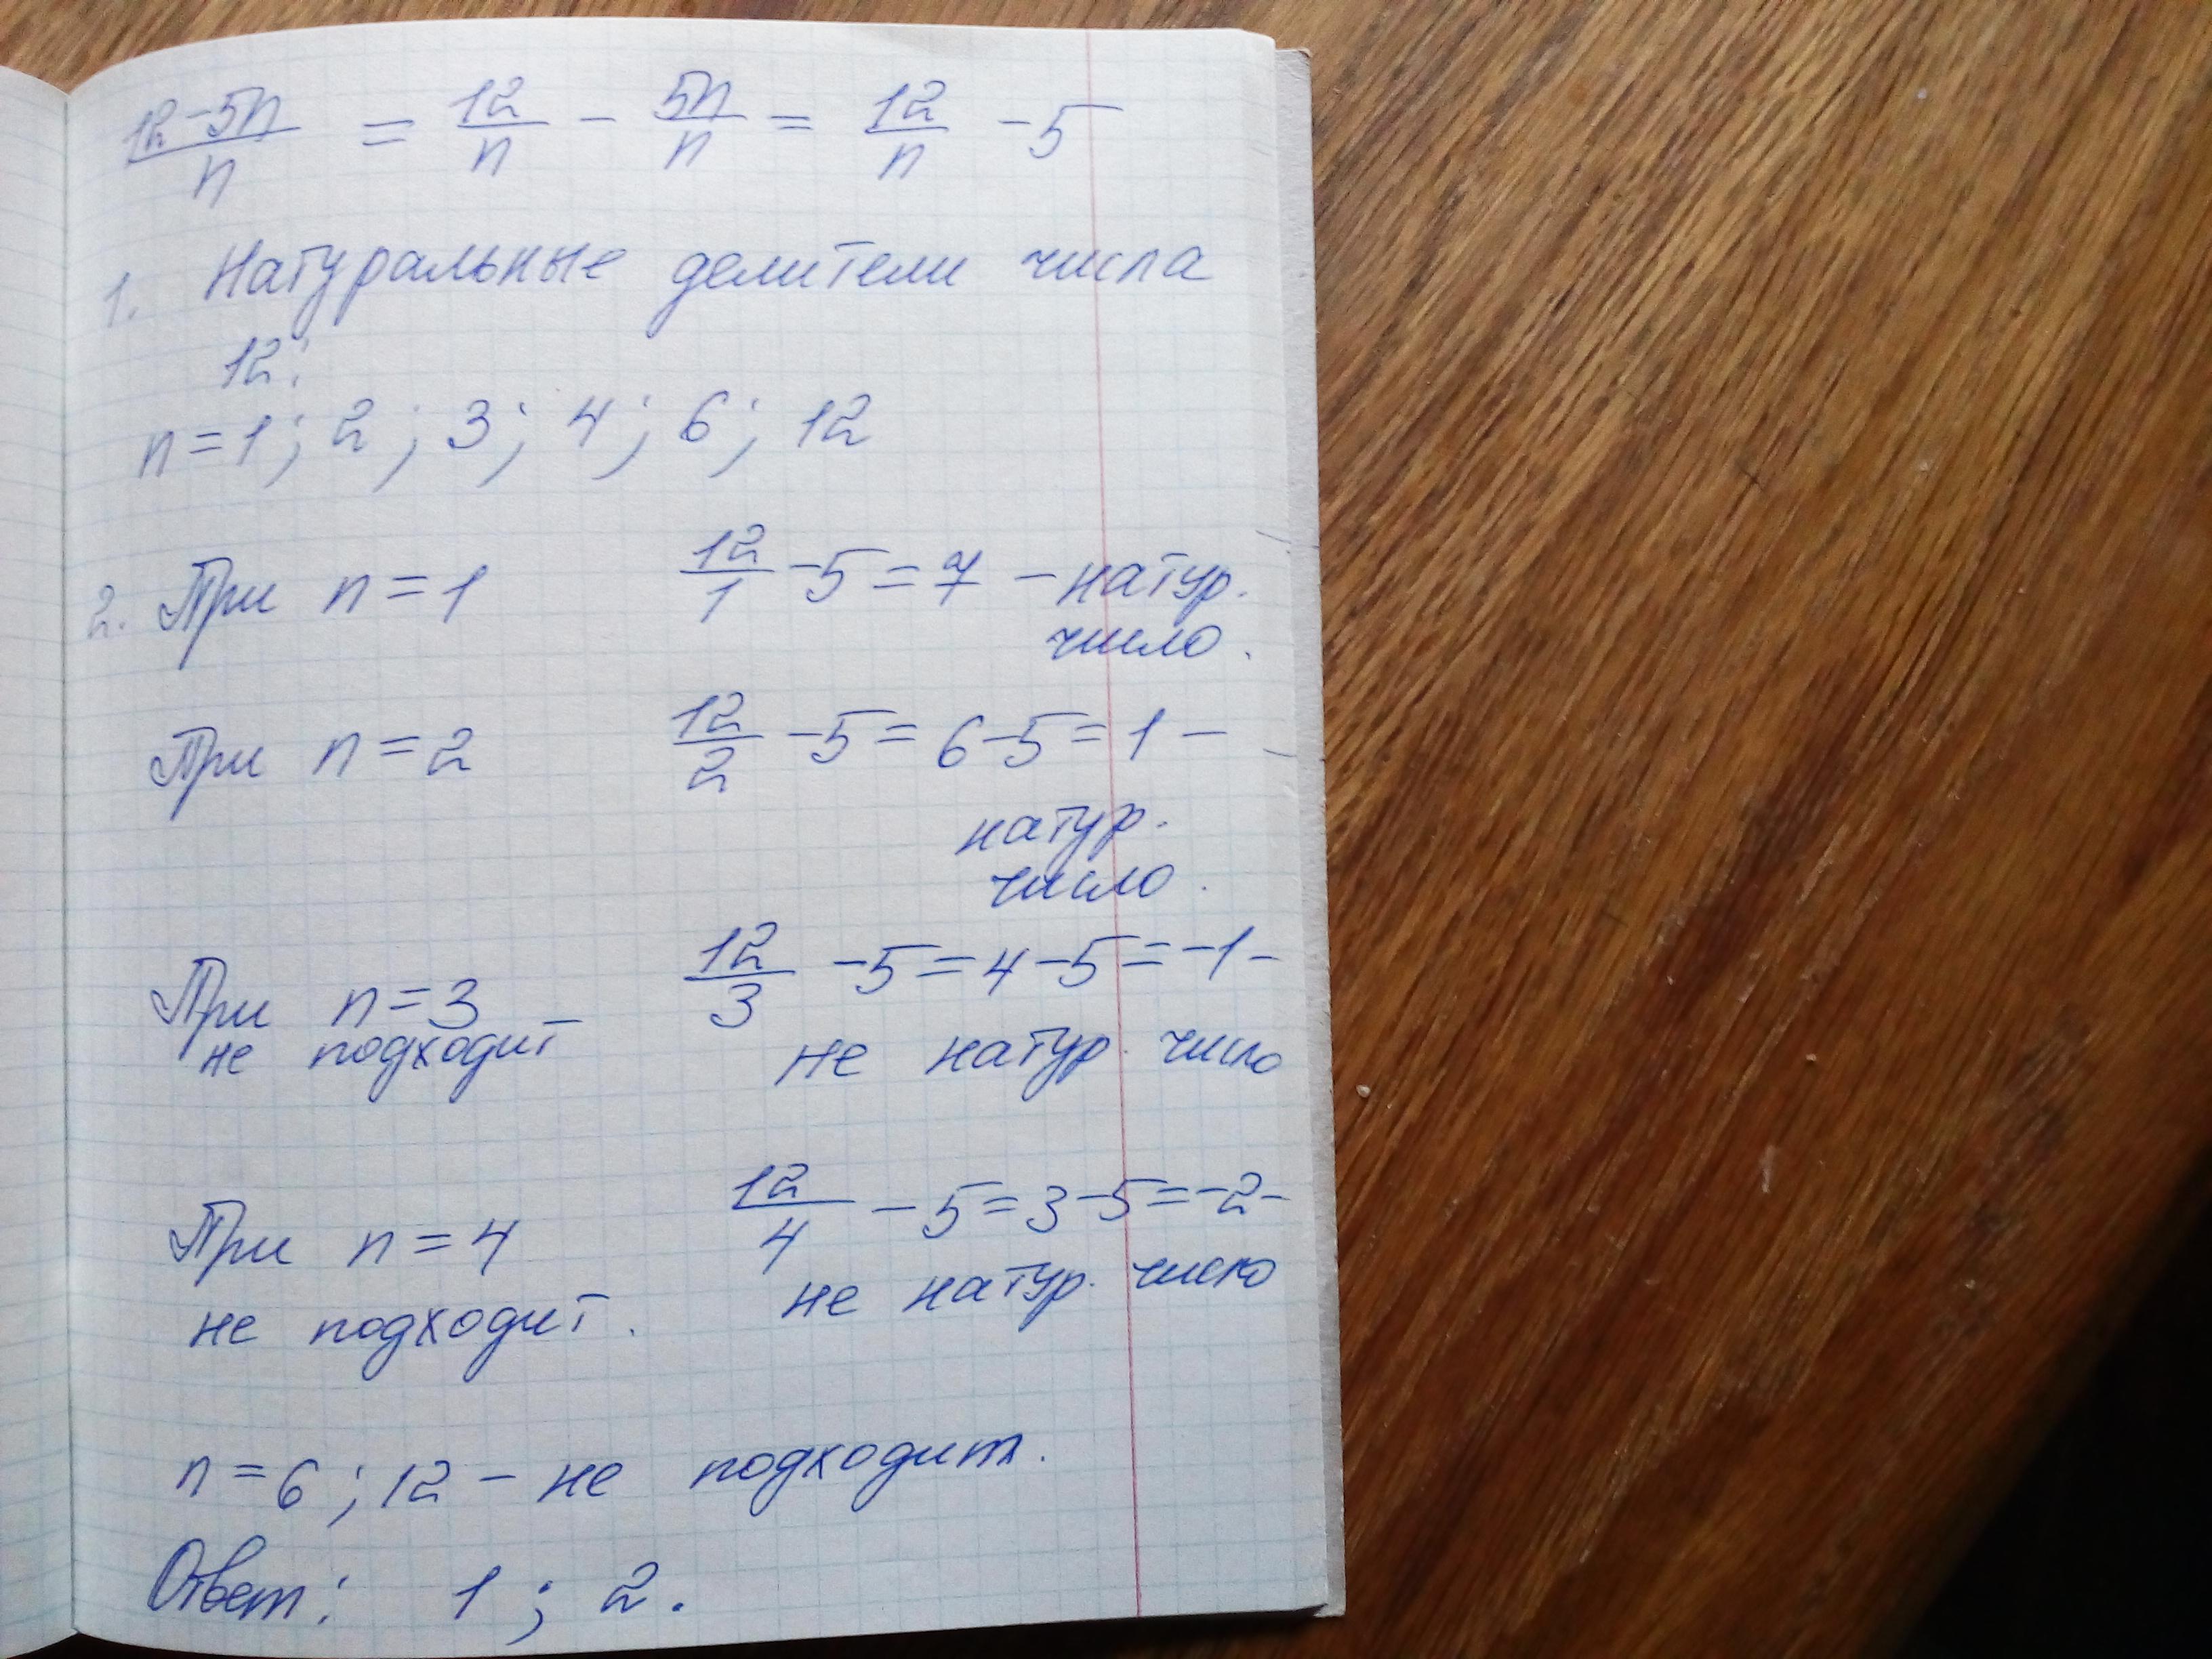 (12-5n)/n = 12/n - 5n/n = 12/n - 5
1. Натуральные делители числа
12:
n=1; 2; 3; 4; 6; 12
2. При n=1 12/1 -5=7 - натур.
число.
При n=2 12/2 -5= 6-5=1 -
натур.
число.
При n=3 12/3 -5=4-5=-1-
не подходит не натур. число
При n=4 12/4 -5=3-5=-2-
не подходит. не натур. число
n=6; 12 - не подходит.
Ответ: 1; 2.